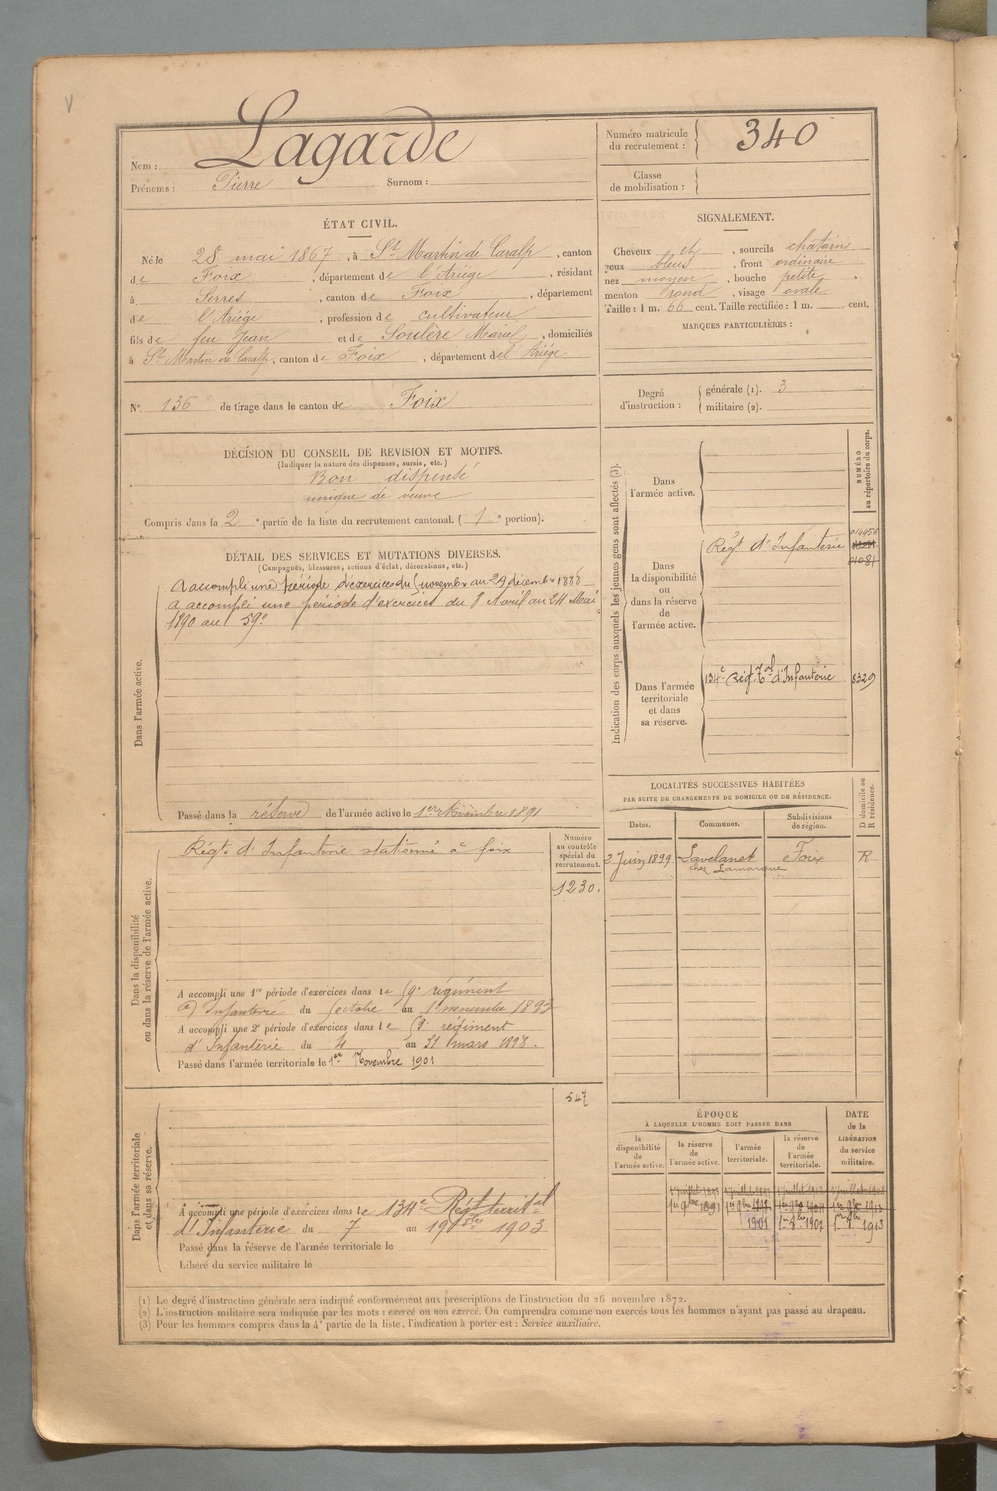 Nom : Lagarde
Prénoms : Pierre Surnom :
Numéro matricule du recrutement : 340
Classe de mobilisation :
ÉTAT CIVIL.
Né le 28 mai 1867, à St Martin de Caralp, canton
de Foix, département de l'Ariège, résidant
à Serres, canton de Foix, département
de l'Ariége, profession de cultivateur
fils de feu Jean et de Soulère Marie, domiciliés
à St Martin de Caralp, canton de Foix, département del'Ariége
SIGNALEMENT.
Cheveux et, sourcils chatains
yeux bleus, front ordinaire
nez moyen, bouche petite
menton rond, visage ovale
Taille : 1 m. 66 cent. Taille rectifiée : 1 m. cent.
MARQUES PARTICULIÈRES :
N°. 136 de tirage dans le canton de Foix
Degré d'instruction : générale (1). 3
militaire (2).
DÉCISION DU CONSEIL DE REVISION ET MOTIFS.
(Indiquer la nature des dispenses, sursis, etc.)
Bon dispensé
unique de veuve
Compris dans la 2e partie de la liste du recrutement cantonal. (1e portion).
DÉTAIL DES SERVICES ET MUTATIONS DIVERSES.
(Campagnes, blessures, actions d'éclat, décorations, etc.)
Dans l'armée active.
A accompli une période d'exercices du 1 novembre au 29 décembre 1888
a accompli une période d'exercices du 8 Avril au 24 Mai
1890 au 59e
Passé dans la réserve de l'armée active le 1er Novembre 1891
Indication des corps auxquels les jeunes gens sont affectés (3).
NUMÉRO au répertoire du corps.
Dans l'armée active.
Dans la disponibilité ou dans la réserve de l'armée active.
Régt d'Infanterie 014456
01081
Dans l'armée territoriale et dans sa réserve.
134e Régt Tal d'Infanterie 8329
LOCALITÉS SUCCESSIVES HABITÉES
PAR SUITE DE CHANGEMENTS DE DOMICILE OU DE RÉSIDENCE.
Dates. Communes. Subdivisions de région. D domicile ou R résidence.
3 Juin 1899 Lavelanet Foix R
chez Lamarque
Dans la disponibilité ou dans la réserve de l'armée active.
Numéro au contrôle spécial du recrutement.
Régt d'Infanterie stationné à foix
1230.
A accompli une 1re période d'exercices dans le 59e régiment
d'Infanterie du octobre au 1 novembre 1893
A accompli une 2e période d'exercices dans le 59 régiment
d'Infanterie du 4 au 31 mars 1898.
Passé dans l'armée territoriale le 1er Novembre 1901
Dans l'armée territoriale et dans sa réserve.
547
A accompli une période d'exercices dans le 134e Régt territal
d'Infanterie du 7 au 1903
Passé dans la réserve de l'armée territoriale le
Libéré du service militaire le
ÉPOQUE
À LAQUELLE L'HOMME DOIT PASSER DANS
la disponibilité de l'armée active. la réserve de l'armée active. l'armée territoriale. la réserve de l'armée territoriale.
DATE de la LIBÉRATION du service militaire.
1er 9bre 1891
1901 1907 1913
(1) Le degré d'instruction générale sera indiqué conformément aux prescriptions de l'instruction du 26 novembre 1872.
(2) L'instruction militaire sera indiquée par les mots : exercé ou non exercé. On comprendra comme non exercés tous les hommes n'ayant pas passé au drapeau.
(3) Pour les hommes compris dans la 4e partie de la liste, l'indication à porter est : Service auxiliaire.